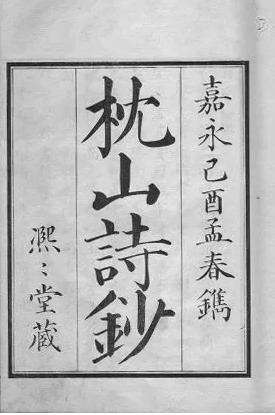 嘉永己酉孟春鐫
枕山詩鈔
熈〻堂藏